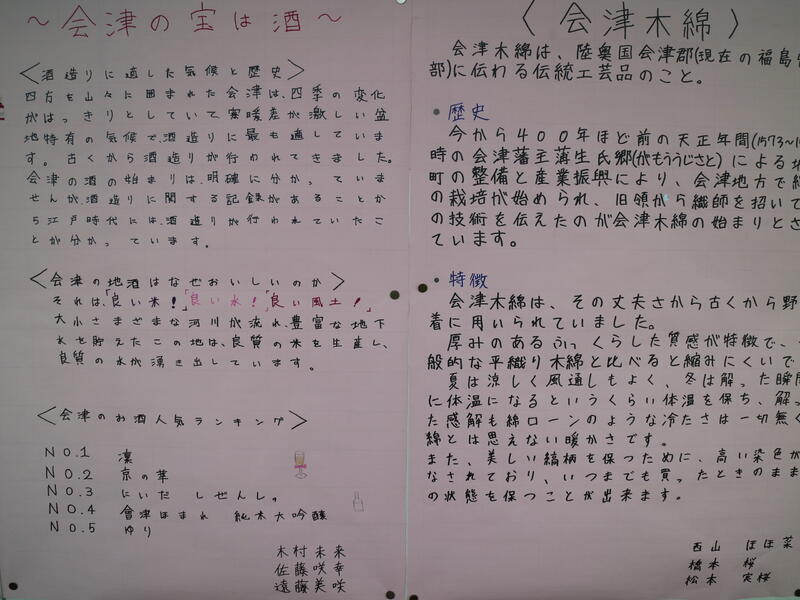 ～会津の宝は酒～
〈酒造りに適した気候と歴史〉
四方を山々に囲まれた会津は、四季の変化
がはっきりとしていて寒暖差が激しい盆
地特有の気候で、酒造りに最も適していま
す。古くから酒造りが行われてきました。
会津の酒の始まりは、明確に分かっていま
せんが、酒造りに関する記録があることか
ら江戸時代には、酒造りが行われていたこ
とが分かっています。
〈会津の地酒はなぜおいしいのか〉
それは、「良い米！「良い水！「良い風土！
大小さまざまな河川が流れ、豊富な地下
水を貯えたこの地は、良質の米を生産し、
良質の水が湧き出しています。
〈会津のお酒人気ランキング〉
NO.1 凜
NO.2 京の華
NO.3 にいだ しぜんしゅ
NO.4 會津ほまれ 純米大吟醸
NO.5 ゆり
木村未来
佐藤咲幸
遠藤美咲
〈会津木綿〉
会津木綿は、陸奥国会津郡(現在の福島
部)に伝わる伝統工芸品のこと。
・歴史
今から400年ほど前の天正年間(1573～1
時の会津藩主蒲生氏郷(がもううじさと)による
町の整備と産業振興により、会津地方で
の栽培が始められ、旧領から織師を招いて
の技術を伝えたのが会津木綿の始まりとさ
ています。
・特徴
会津木綿は、その丈夫さから古くから野
着に用いられていました。
厚みのあるふっくらした質感が特徴で、
般的な平織り木綿と比べると縮みにくいで
夏は涼しく風通しもよく、冬は解った瞬間
に体温になるというくらい体温を保ち、解っ
た感解も綿ローンのような冷たさは一切無く
綿とは思えない暖かさです。
また、美しい縞柄を保つために、高い染色が
なされており、いつまでも買ったときのまま
の状態を保つことが出来ます。
西山 ほほ菜
橋本 桜
松本 実桜